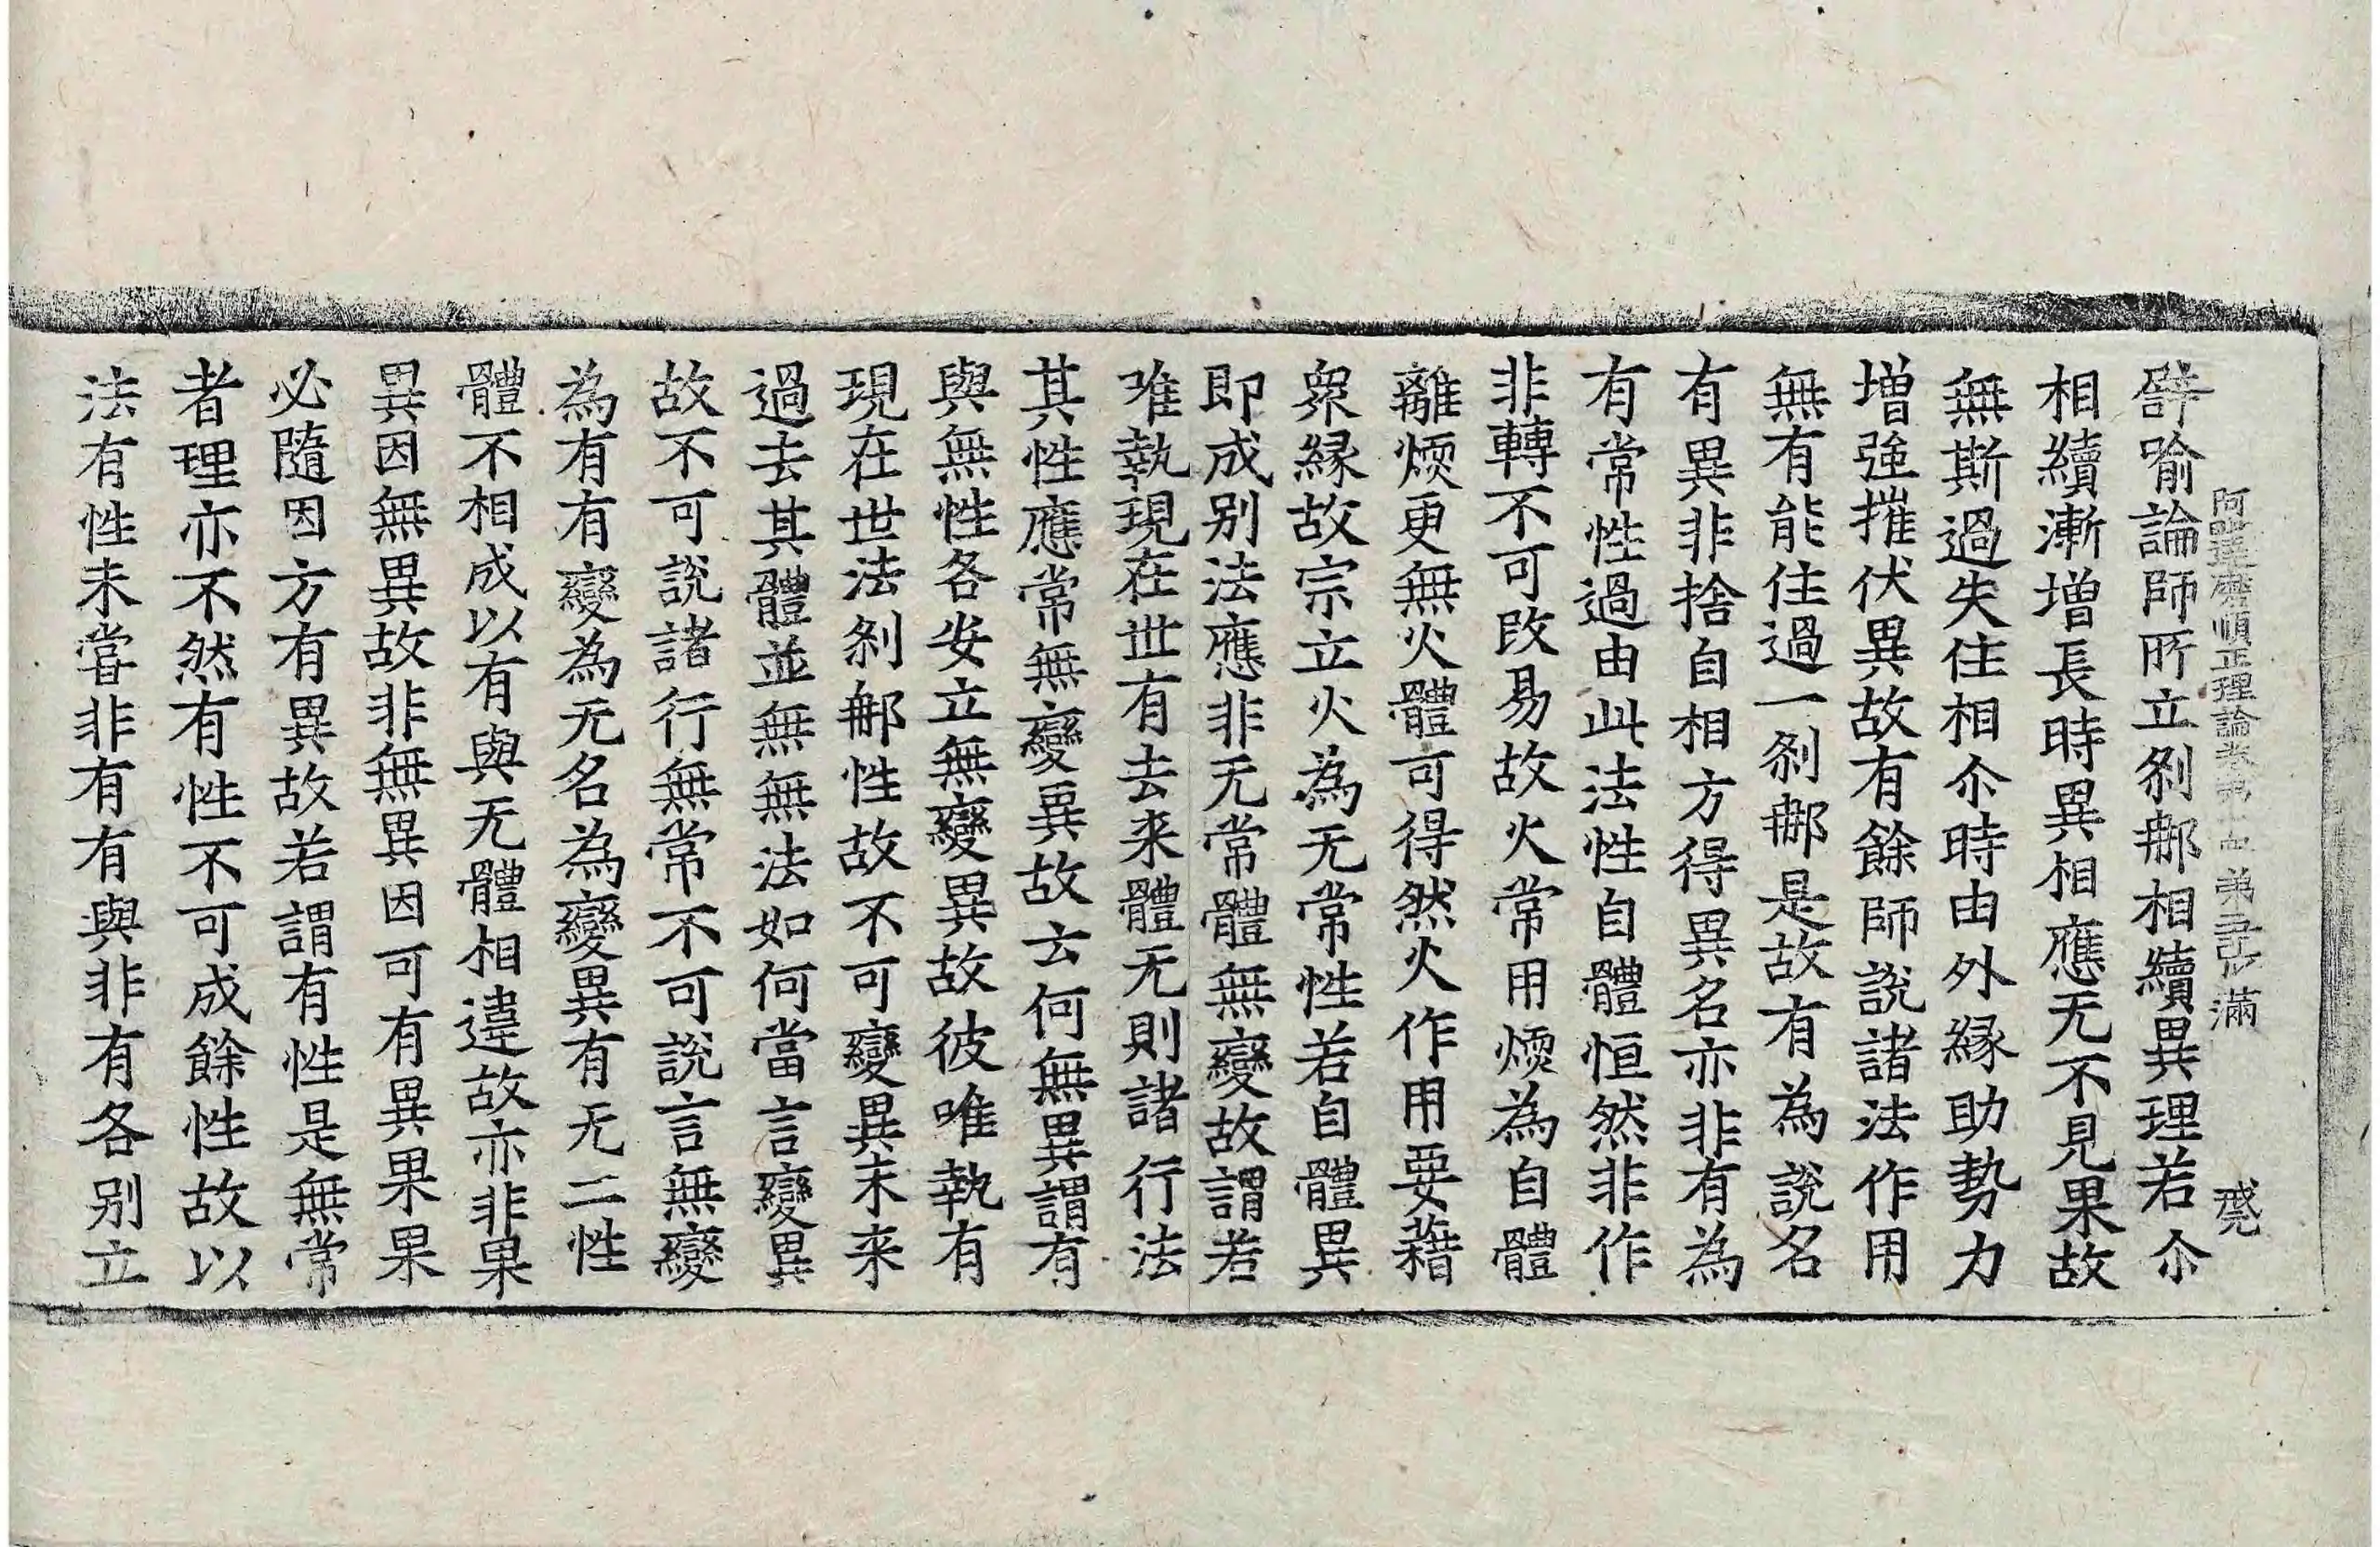 阿毗達磨順正理論卷第十四 第三張 滿
譬喻論師所立剎那相續異理若尒
相續漸增長時異相應无不見果故
無斯過失住相尒時由外縁助勢力
增強摧伏異故有餘師說諸法作用
無有能住過一剎那是故有為說名
有異非捨自相方得異名亦非有為
有常性過由此法性自體恒然非作
非轉不可改易故火常用煗為自體
離煗更無火體可得然火作用要藉
衆縁故宗立火為无常性若自體異
即成别法應非无常體無變故謂若
唯執現在世有去来體无則諸行法
其性應常無變異故云何無異謂有
與無性各安立無變異故彼唯執有
現在世法剎那性故不可變異未来
過去其體並無無法如何當言變異
故不可說諸行無常不可說言無變
為有有變為无名為變異有无二性
體不相成以有與无體相違故亦非果
異因無異故非無異因可有異果果
必隨因方有異故若謂有性是無常
者理亦不然有性不可成餘性故以
法有性未嘗非有有與非有各别立